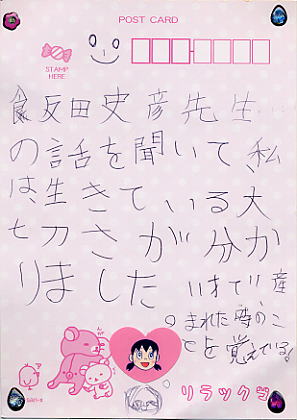 POST CARD
STAMP
HERE
飯田史彦先生
の話を聞いて、私
は、生きている大
切さが分か
りました
。
産
まれた時のこ
とを覚えている。
リラックマ